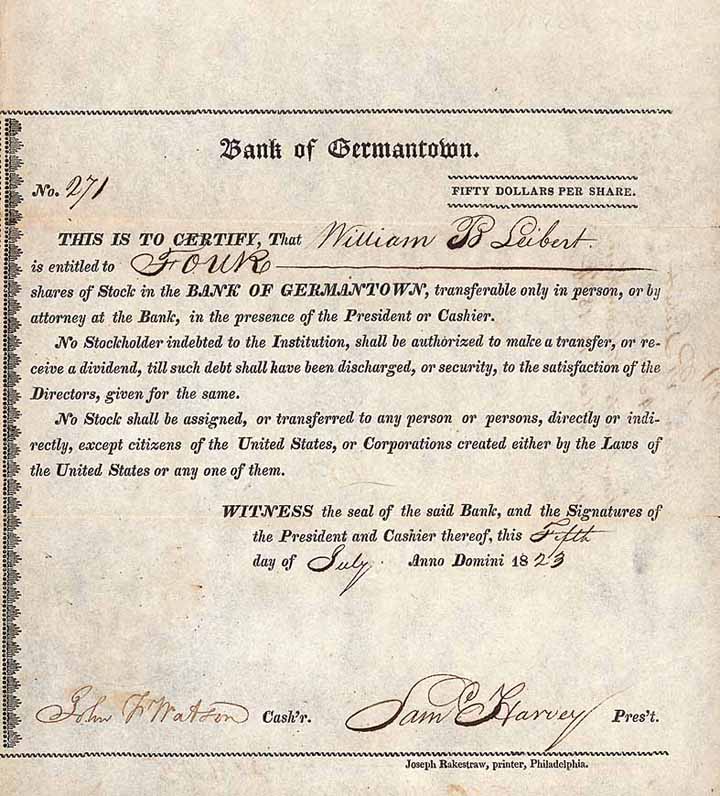 Bank of Germantown.
No. 271
FIFTY DOLLARS PER SHARE.
THIS IS TO CERTIFY, That William B Leibert.
is entitled to FOUR
shares of Stock in the BANK OF GERMANTOWN, transferable only in person, or by
attorney at the Bank, in the presence of the President or Cashier.
No Stockholder indebted to the Institution, shall be authorized to make a transfer, or re-
ceive a dividend, till such debt shall have been discharged, or security, to the satisfaction of the
Directors, given for the same.
No Stock shall be assigned, or transferred to any person or persons, directly or indi-
rectly, except citizens of the United States, or Corporations created either by the Laws of
the United States or any one of them.
WITNESS the seal of the said Bank, and the Signatures of
the President and Cashier thereof, this Fifth
day of July. Anno Domini 1823
John F Watson Cash'r. Sam E Harvey Pres't.
Joseph Rakestraw, printer, Philadelphia.